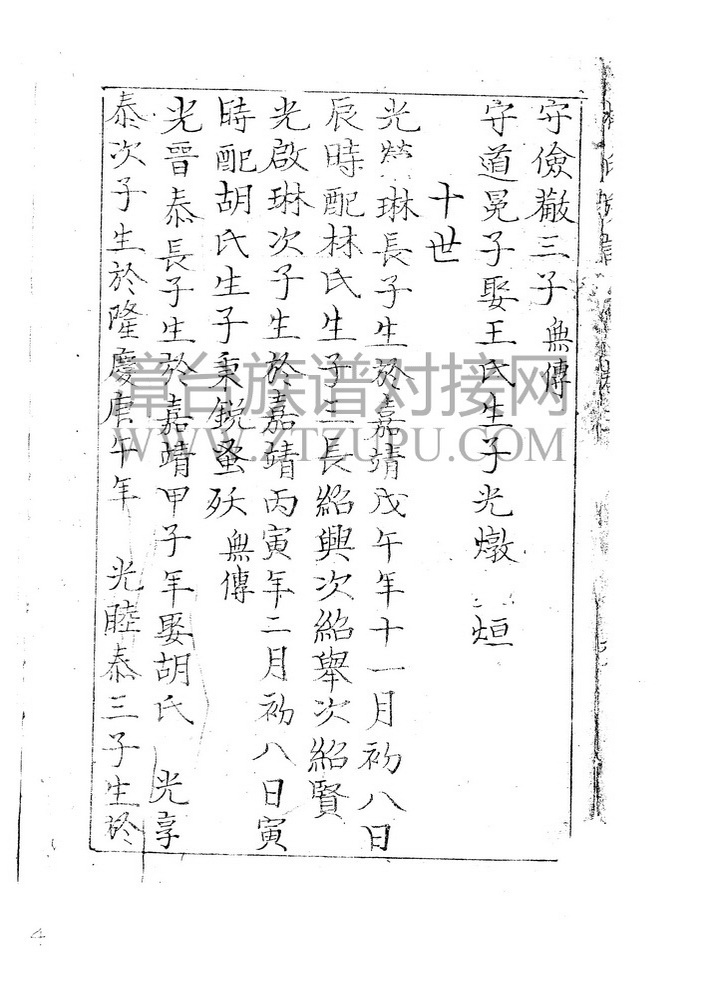 守儉巌三子 無傳
守道冕子娶王氏生子光燉 烜
十世
光 琳長子生於嘉靖戊午年十一月初八日
辰時配林氏生子三長紹興次紹舉次紹賢
光啟琳次子生於嘉靖丙寅年二月初八日寅
時配胡氏生子秉銳蚤殀 無傳
光晋泰長子生於嘉靖甲子年娶胡氏 光享
泰次子生於隆慶庚午年 光睦泰三子生於
章台族谱对接网
WWW.ZTZUPU.COM
4